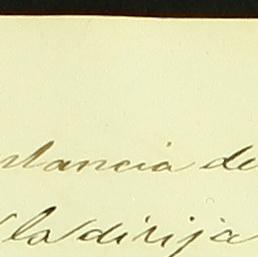 stancia de
la dirija